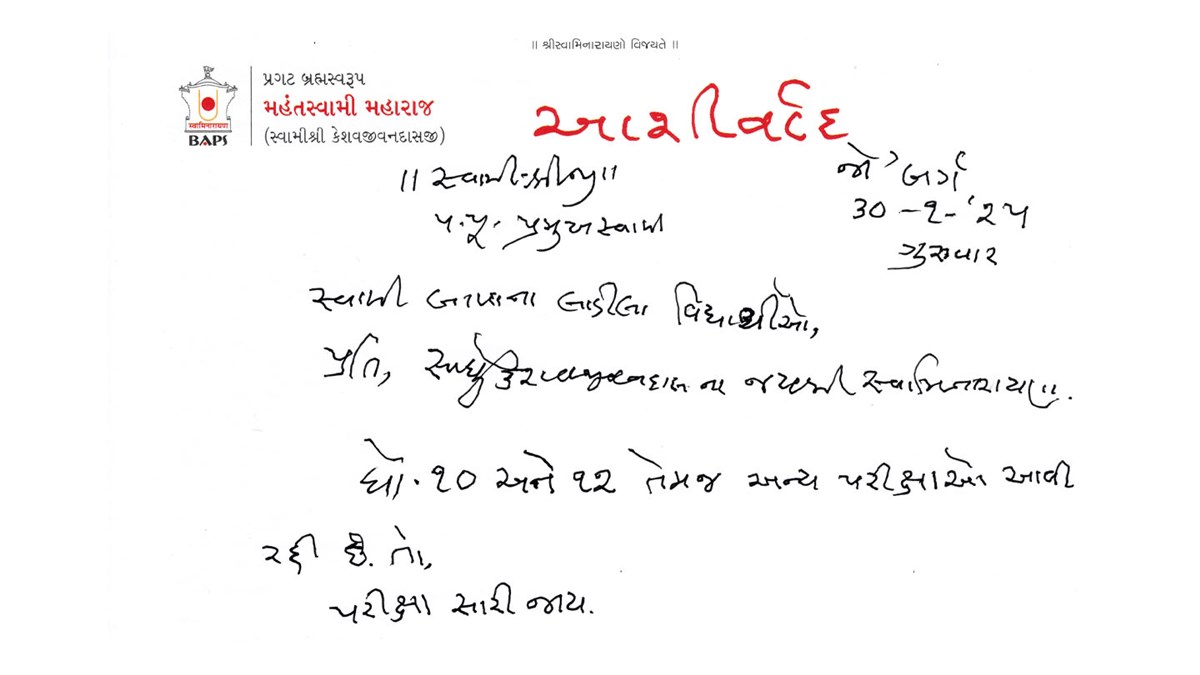 ॥ શ્રીસ્વામિનારાયણો વિજયતે ॥
પ્રગટ બ્રહ્મસ્વરૂપ
મહંતસ્વામી મહારાજ
(સ્વામીશ્રી કેશવજીવનદાસજી)
સ્વામિનારાયણ
BAPS
આશીર્વાદ
॥ સ્વામી-શ્રીજી ॥
જો'બર્ગ
પ.પૂ. પ્રમુખસ્વામી
૩૦-૧-'૨૫
ગુરુવાર
સ્વામી બાપાના લાડીલા વિદ્યાર્થીઓ,
પ્રતિ, સાધુ કેશવજીવનદાસ ના જયશ્રી સ્વામિનારાયણ.
ધો. ૧૦ અને ૧૨ તેમજ અન્ય પરીક્ષાઓ આવી
રહી છે. તો,
પરીક્ષા સારી જાય.